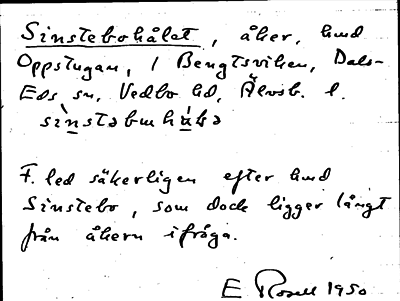 Sinstebohålet, åker, hmd
Oppstugan, i Bengtsviken, Dals-
Eds sn, Vedbo hd, Älvsb. l.
sìnstəbωhά̣lə
F. led säkerligen efter hmd
Sinstebo, som dock ligger långt
från åkern ifråga.
E Rosell 1950